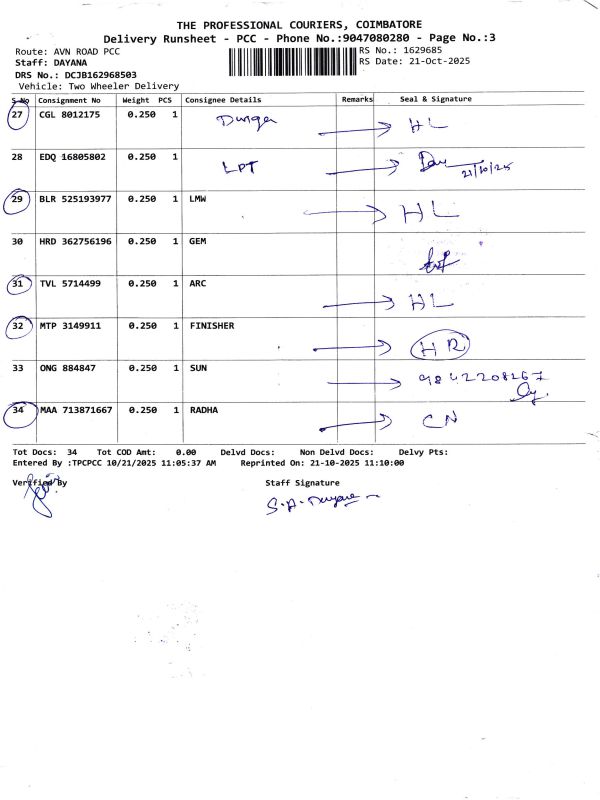 THE PROFESSIONAL COURIERS, COIMBATORE
Delivery Runsheet - PCC - Phone No.:9047080280 - Page No.:3
Route: AVN ROAD PCC RS No.: 1629685
Staff: DAYANA RS Date: 21-Oct-2025
DRS No.: DCJB162968503
Vehicle: Two Wheeler Delivery
S No Consignment No Weight PCS Consignee Details Remarks Seal & Signature
27 CGL 8012175 0.250 1 Durga HL
28 EDQ 16805802 0.250 1 LPT 21/10/25
29 BLR 525193977 0.250 1 LMW HL
30 HRD 362756196 0.250 1 GEM
31 TVL 5714499 0.250 1 ARC HL
32 MTP 3149911 0.250 1 FINISHER HR
33 ONG 884847 0.250 1 SUN 9842208267
34 MAA 713871667 0.250 1 RADHA CN
Tot Docs: 34 Tot COD Amt: 0.00 Delvd Docs: Non Delvd Docs: Delvy Pts:
Entered By :TPCPCC 10/21/2025 11:05:37 AM Reprinted On: 21-10-2025 11:10:00
Verified By Staff Signature